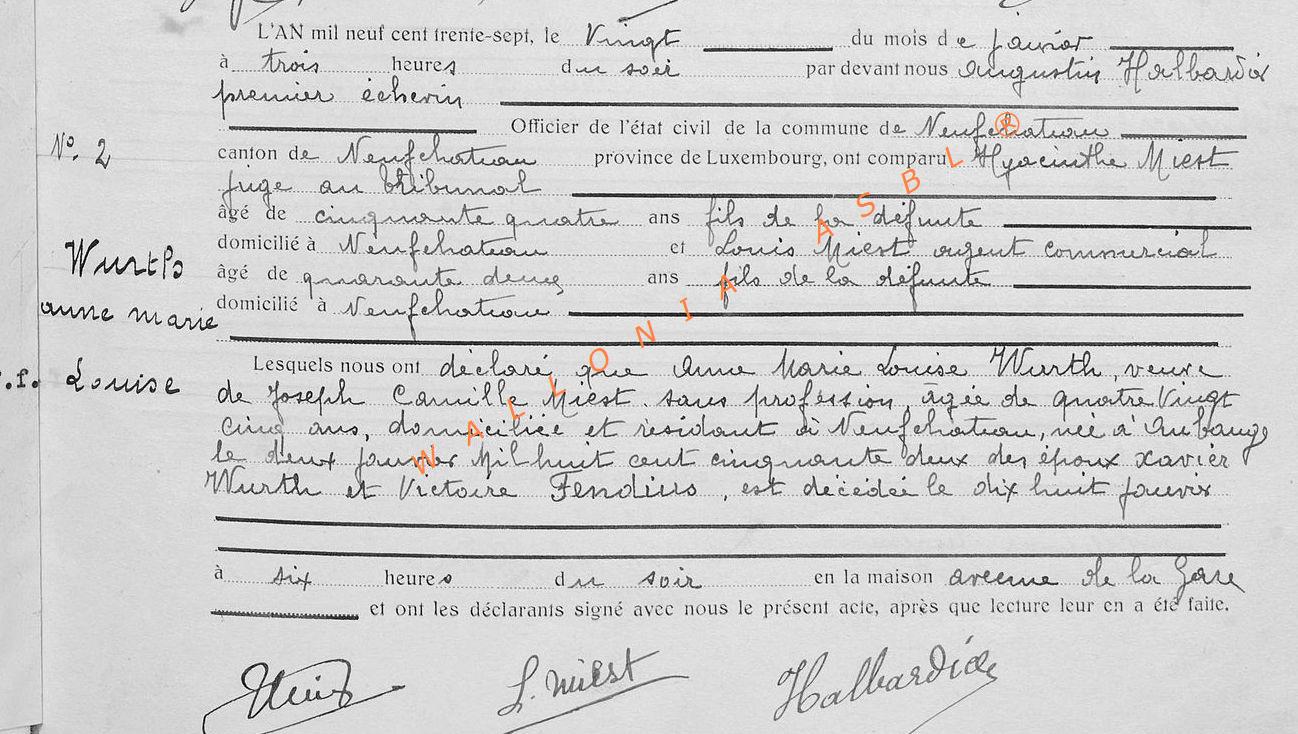 L'AN mil neuf cent trente-sept, le Vingt du mois de janvier
à trois heures du soir par devant nous Augustin Halbardier
premier échevin
Officier de l'état civil de la commune de Neufchateau
N°. 2
canton de Neufchateau province de Luxembourg, ont comparu Hyacinthe Miest
juge au tribunal
âgé de cinquante quatre ans fils de la défunte
domicilié à Neufchateau et Louis Miest agent commercial
Wurth
âgé de quarante deux ans fils de la défunte
anne marie
domicilié à Neufchateau
Lesquels nous ont déclaré que Anne Marie Louise Wurth, veuve
Louise
de Joseph Camille Miest sans profession, âgée de quatre Vingt
cinq ans, domiciliée et résidant à Neufchateau, née à Aubange
le deux janvier Mil huit cent cinquante deux des époux Xavier
Wurth et Victoire Fendius, est décédée le dix huit janvier
à six heures du soir en la maison avenue de la Gare
et ont les déclarants signé avec nous le présent acte, après que lecture leur en a été faite.
L. Miest Halbardier
WALLONIA ASBL ®